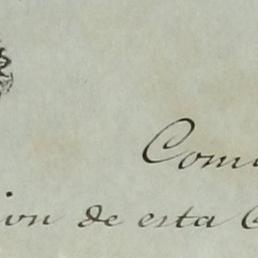 Com
ion de esta C